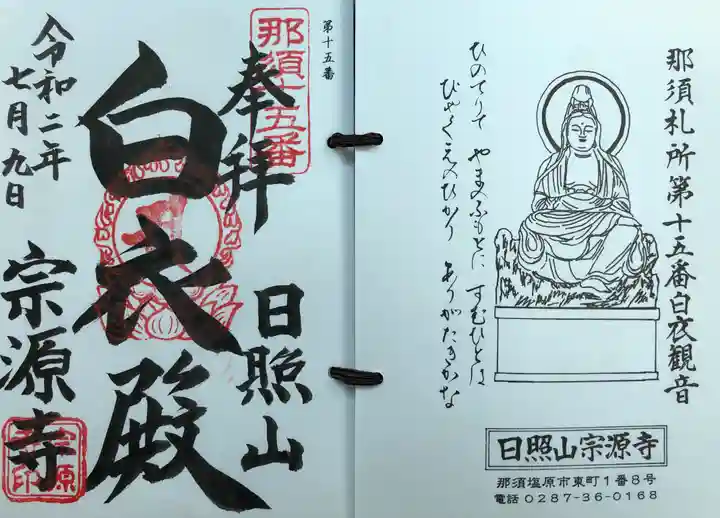 那須札所第十五番白衣観音
ひのてりて やまのふもとに すむひとは
びゃくえのひかり ありがたきかな
日照山宗源寺
那須塩原市東町1番8号
電話 0287-36-0168
第十五番
那須十五番
奉拝
日照山
白衣殿
令和二年
七月九日
宗源寺